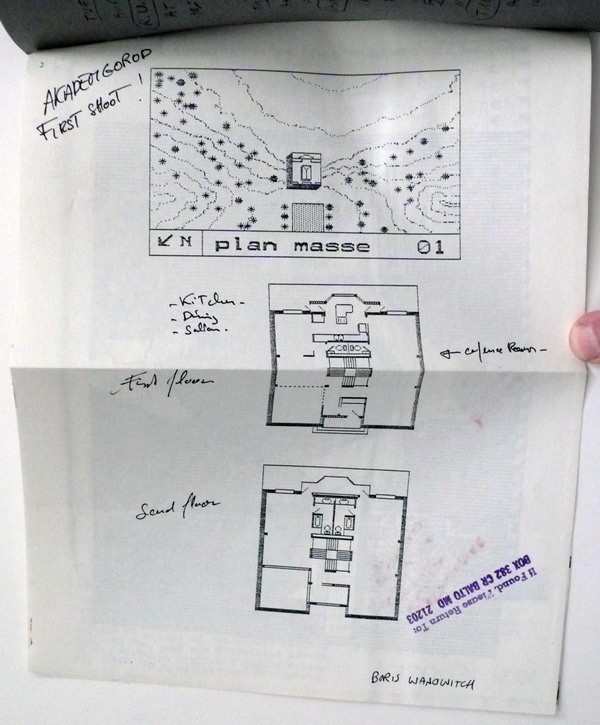 AKADEMGOROD
FIRST SHOOT !
N plan masse 01
- Kitchen -
- Dining
- Salon.
First floor
Second floor
If Found, Please Return To:
BOX 382 CR BALTO MD 21203
BORIS WANOWITCH